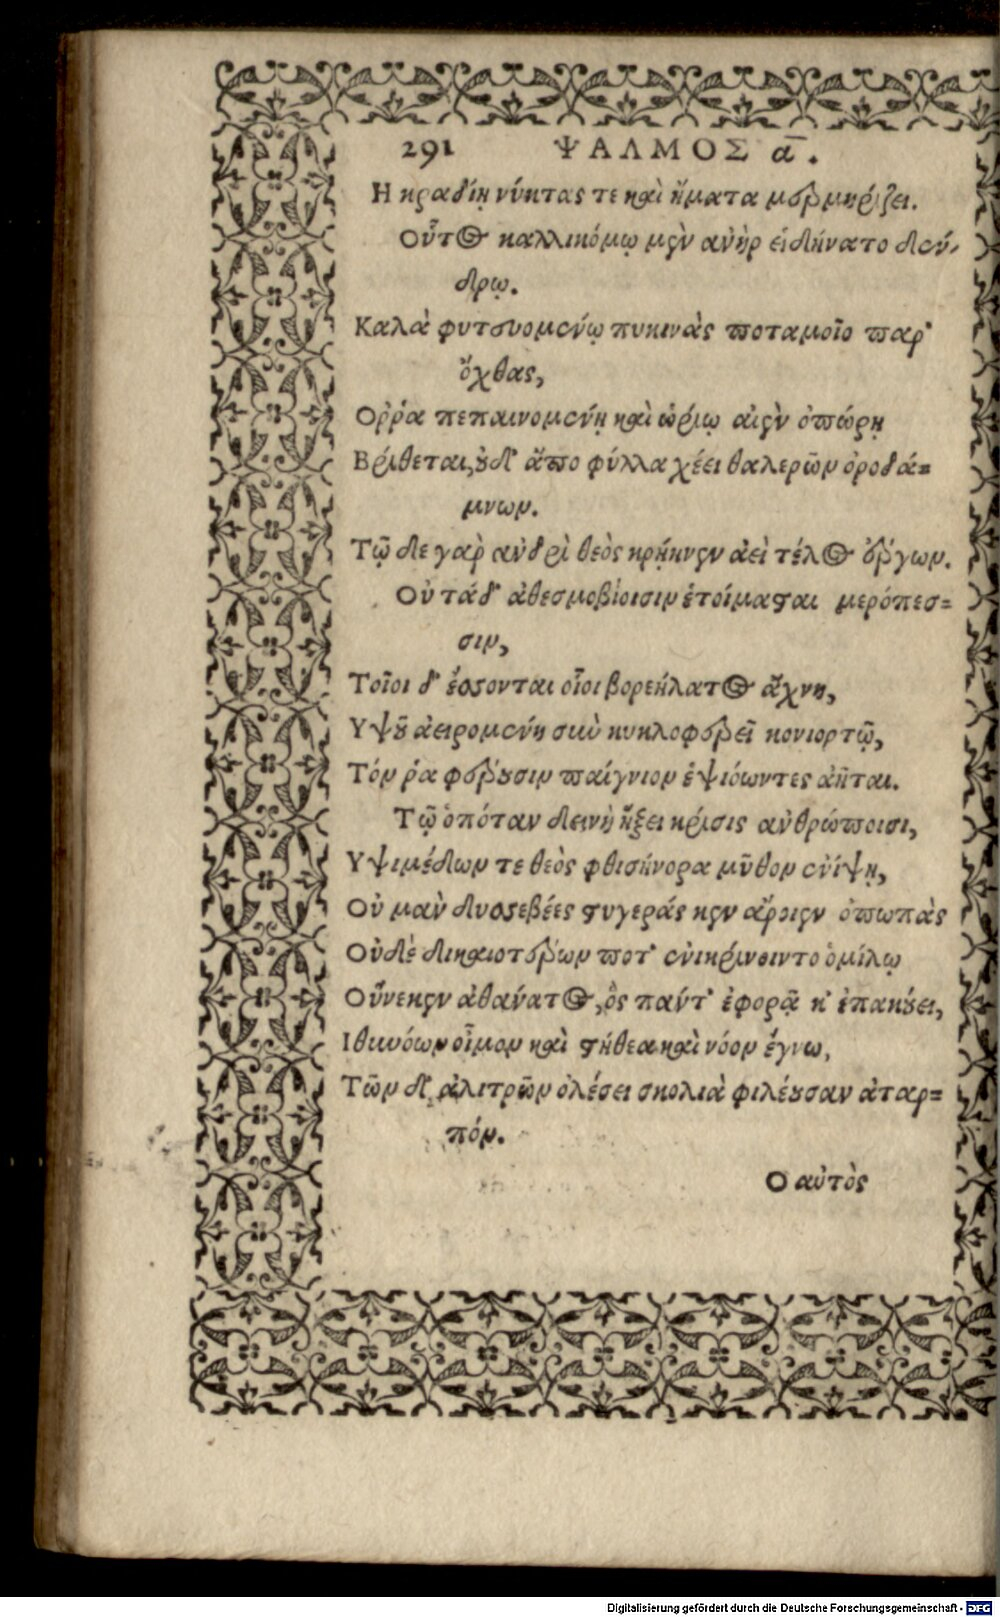 291 ΨΑΛΜΟΣ α.
Η κραδίῃ νύκτας τε καὶ ἤματα μερμηρίζει.
Οὗτος καλλικόμῳ μὲν ἀνὴρ εἰδήνατο δέν-
δρῳ.
Καλὰ φυτευομένῳ πυκινὰς ποταμοῖο παρ'
ὄχθας,
Ορῥα πεπαινομένῃ καὶ ὡρίῳ αἰὲν ὀπώρῃ
Βρίθεται, οὐδ' ἄπο φύλλα χέει θαλερῶν ὀροδά-
μνων.
Τῷδε γαρ ἀνδρὶ θεὸς κρήηνεν ἀεὶ τέλος ἔργων.
Οὐ τάδ' ἀθεσμοβίοισιν ἑτοίμασαι μερόπεσ-
σιν,
Τοῖοι δ' ἔσσονται οἷοι βορεήλατος ἄχνη,
Υψοῦ ἀειρομένη σὺν κυκλοφορεῖ κονιορτῷ,
Τόν ῥα φορέουσιν παίγνιον ἑψιόωντες ἀῆται.
Τῷ ὁπόταν δεινὴ ἥξει κρίσις ἀνθρώποισι,
Υψιμέδων τε θεὸς φθισήνορα μῦθον ἐνίψῃ,
Οὐ μὰν δυσσεβέες στυγεράς κεν ἄροιεν ὀπωπὰς
Οὐδὲ δικαιοτέρων ποτ' ἐνικρίνοιντο ὁμίλῳ
Οὕνεκεν ἀθανατος, ὃς παντ' ἐφορᾷ κ' ἐπακούει,
Ιθυνόων οἶμον καὶ στήθεα καὶ νόον ἔγνω,
Τῶν δ' ἀλιτρῶν ὀλέσει σκολιὰ φιλέουσαν ἀταρ-
πόν.
Ο αὐτὸς
Digitalisierung gefördert durch die Deutsche Forschungsgemeinschaft - DFG